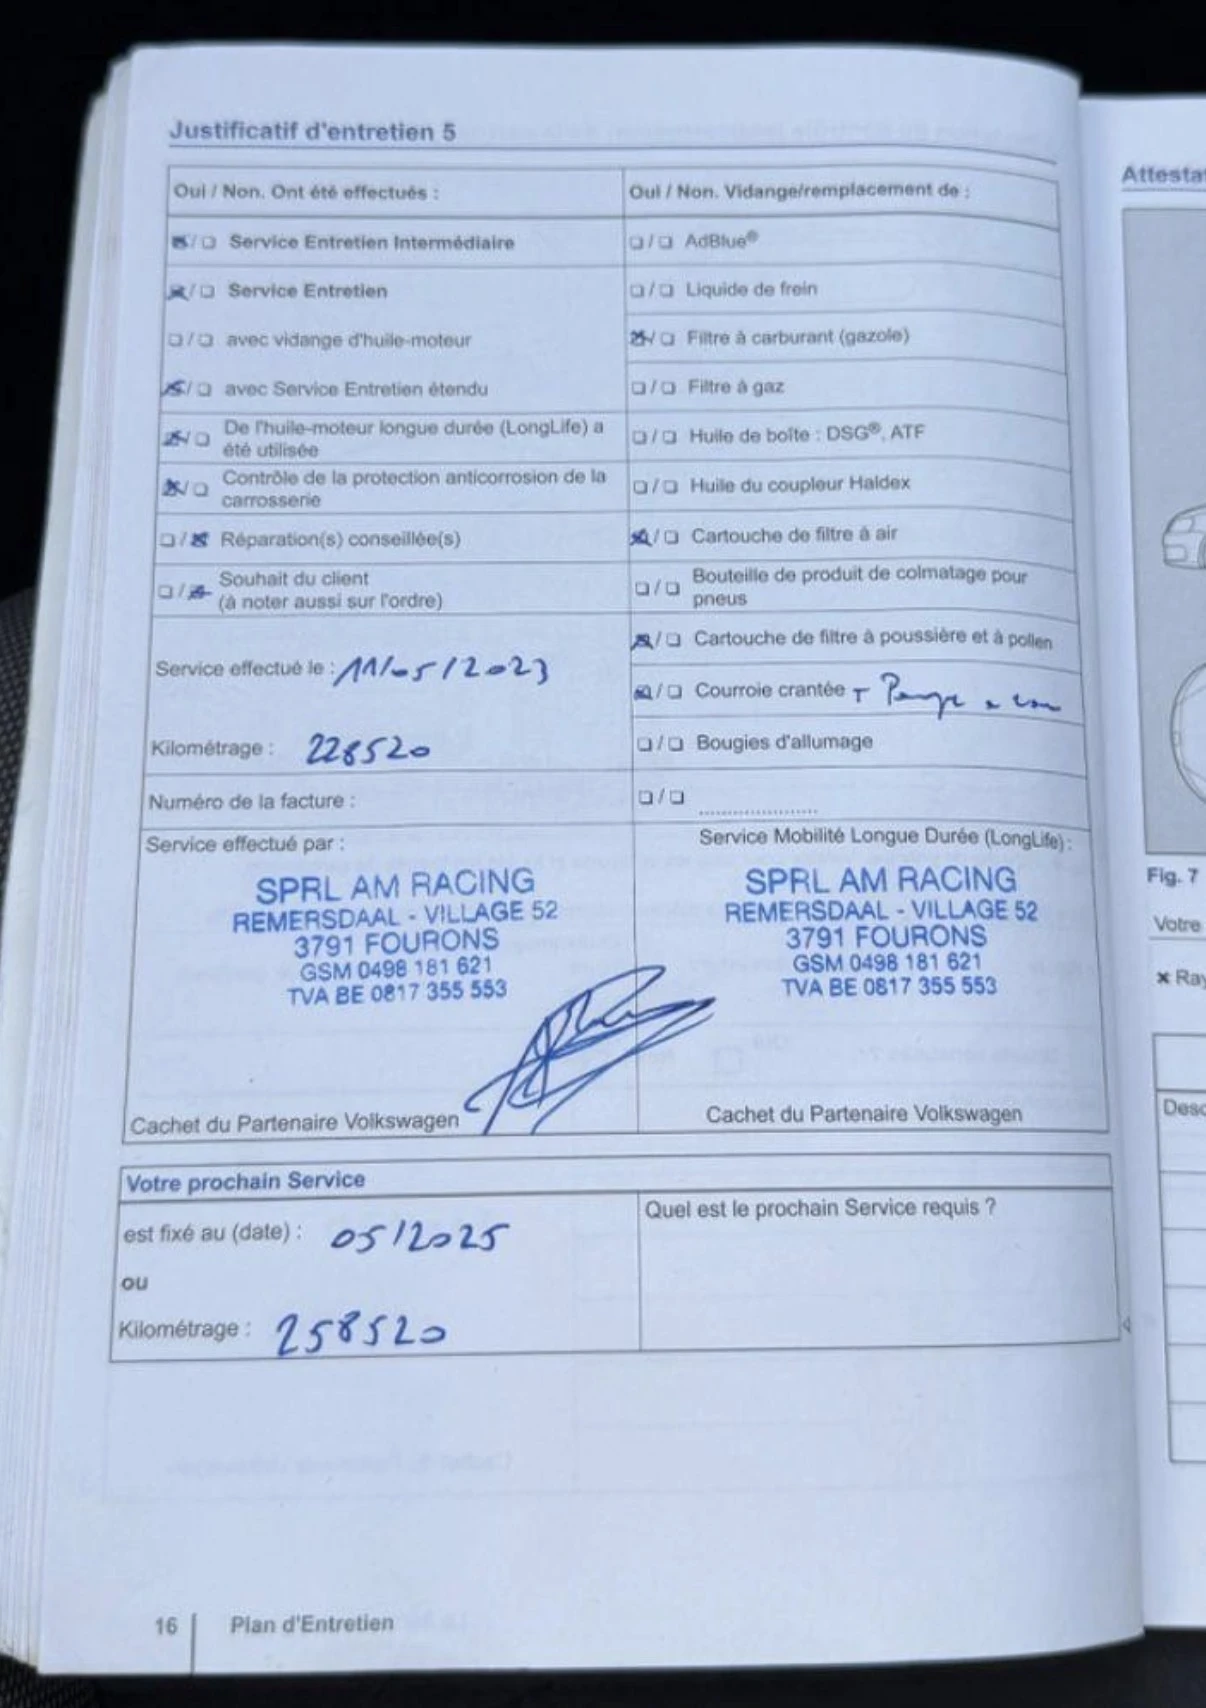 Justificatif d'entretien 5
Oui / Non. Ont été effectués :
☒/☐ Service Entretien Intermédiaire
☒/☐ Service Entretien
☐/☐ avec vidange d'huile-moteur
☒/☐ avec Service Entretien étendu
☒/☐ De l'huile-moteur longue durée (LongLife) a
été utilisée
☒/☐ Contrôle de la protection anticorrosion de la
carrosserie
☐/☒ Réparation(s) conseillée(s)
☐/☒ Souhait du client
(à noter aussi sur l'ordre)
Service effectué le : 11/05/2023
Kilométrage : 228520
Numéro de la facture :
Oui / Non. Vidange/remplacement de :
☐/☐ AdBlue®
☐/☐ Liquide de frein
☒/☐ Filtre à carburant (gazole)
☐/☐ Filtre à gaz
☐/☐ Huile de boîte : DSG®, ATF
☐/☐ Huile du coupleur Haldex
☒/☐ Cartouche de filtre à air
☐/☐ Bouteille de produit de colmatage pour
pneus
☒/☐ Cartouche de filtre à poussière et à pollen
☒/☐ Courroie crantée + Pompe a eau
☐/☐ Bougies d'allumage
☐/☐ ....................
Service effectué par :
SPRL AM RACING
REMERSDAAL - VILLAGE 52
3791 FOURONS
GSM 0498 181 621
TVA BE 0817 355 553
Cachet du Partenaire Volkswagen
Service Mobilité Longue Durée (LongLife) :
SPRL AM RACING
REMERSDAAL - VILLAGE 52
3791 FOURONS
GSM 0498 181 621
TVA BE 0817 355 553
Cachet du Partenaire Volkswagen
Votre prochain Service
est fixé au (date) : 05/2025
ou
Kilométrage : 258520
Quel est le prochain Service requis ?
16
Plan d'Entretien
Attesta
Fig. 7
Votre
× Ray
Desc